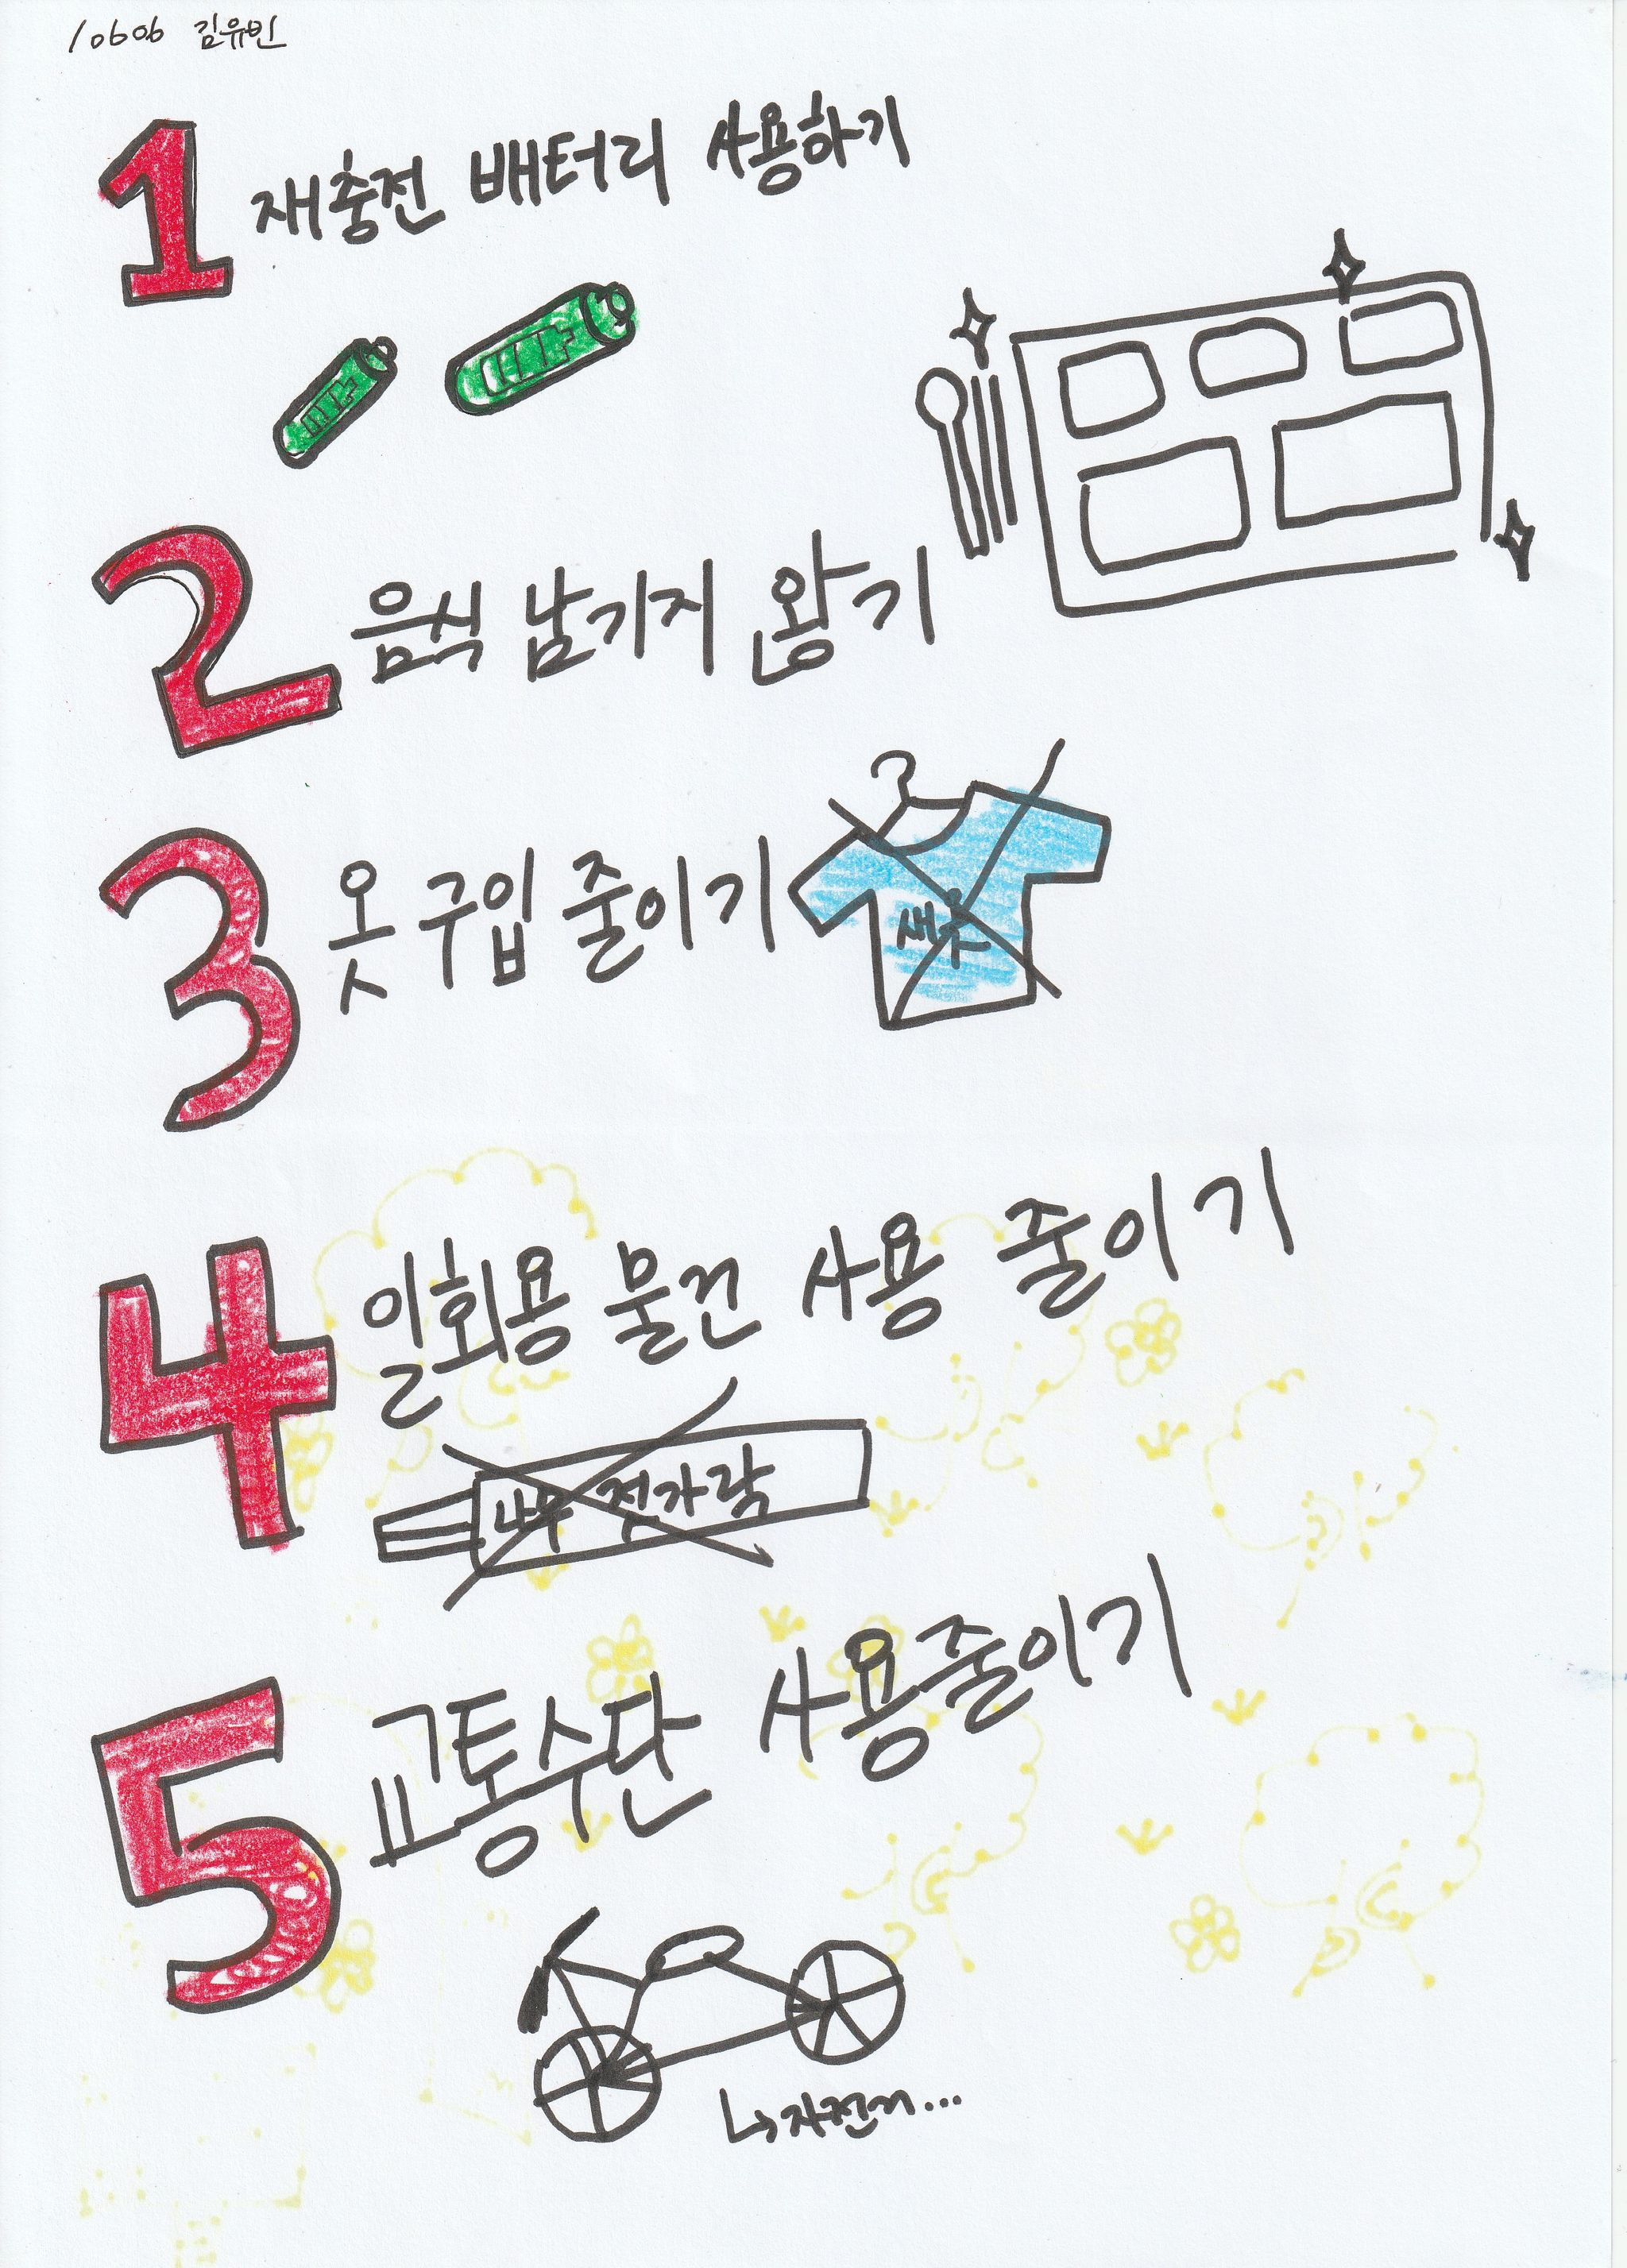 10606 김유빈
1 재충전 배터리 사용하기
2 음식 남기지 않기
3 옷 구입 줄이기
새우
4 일회용 물건 사용 줄이기
나무 젓가락
5 교통수단 사용줄이기
↳자전거...